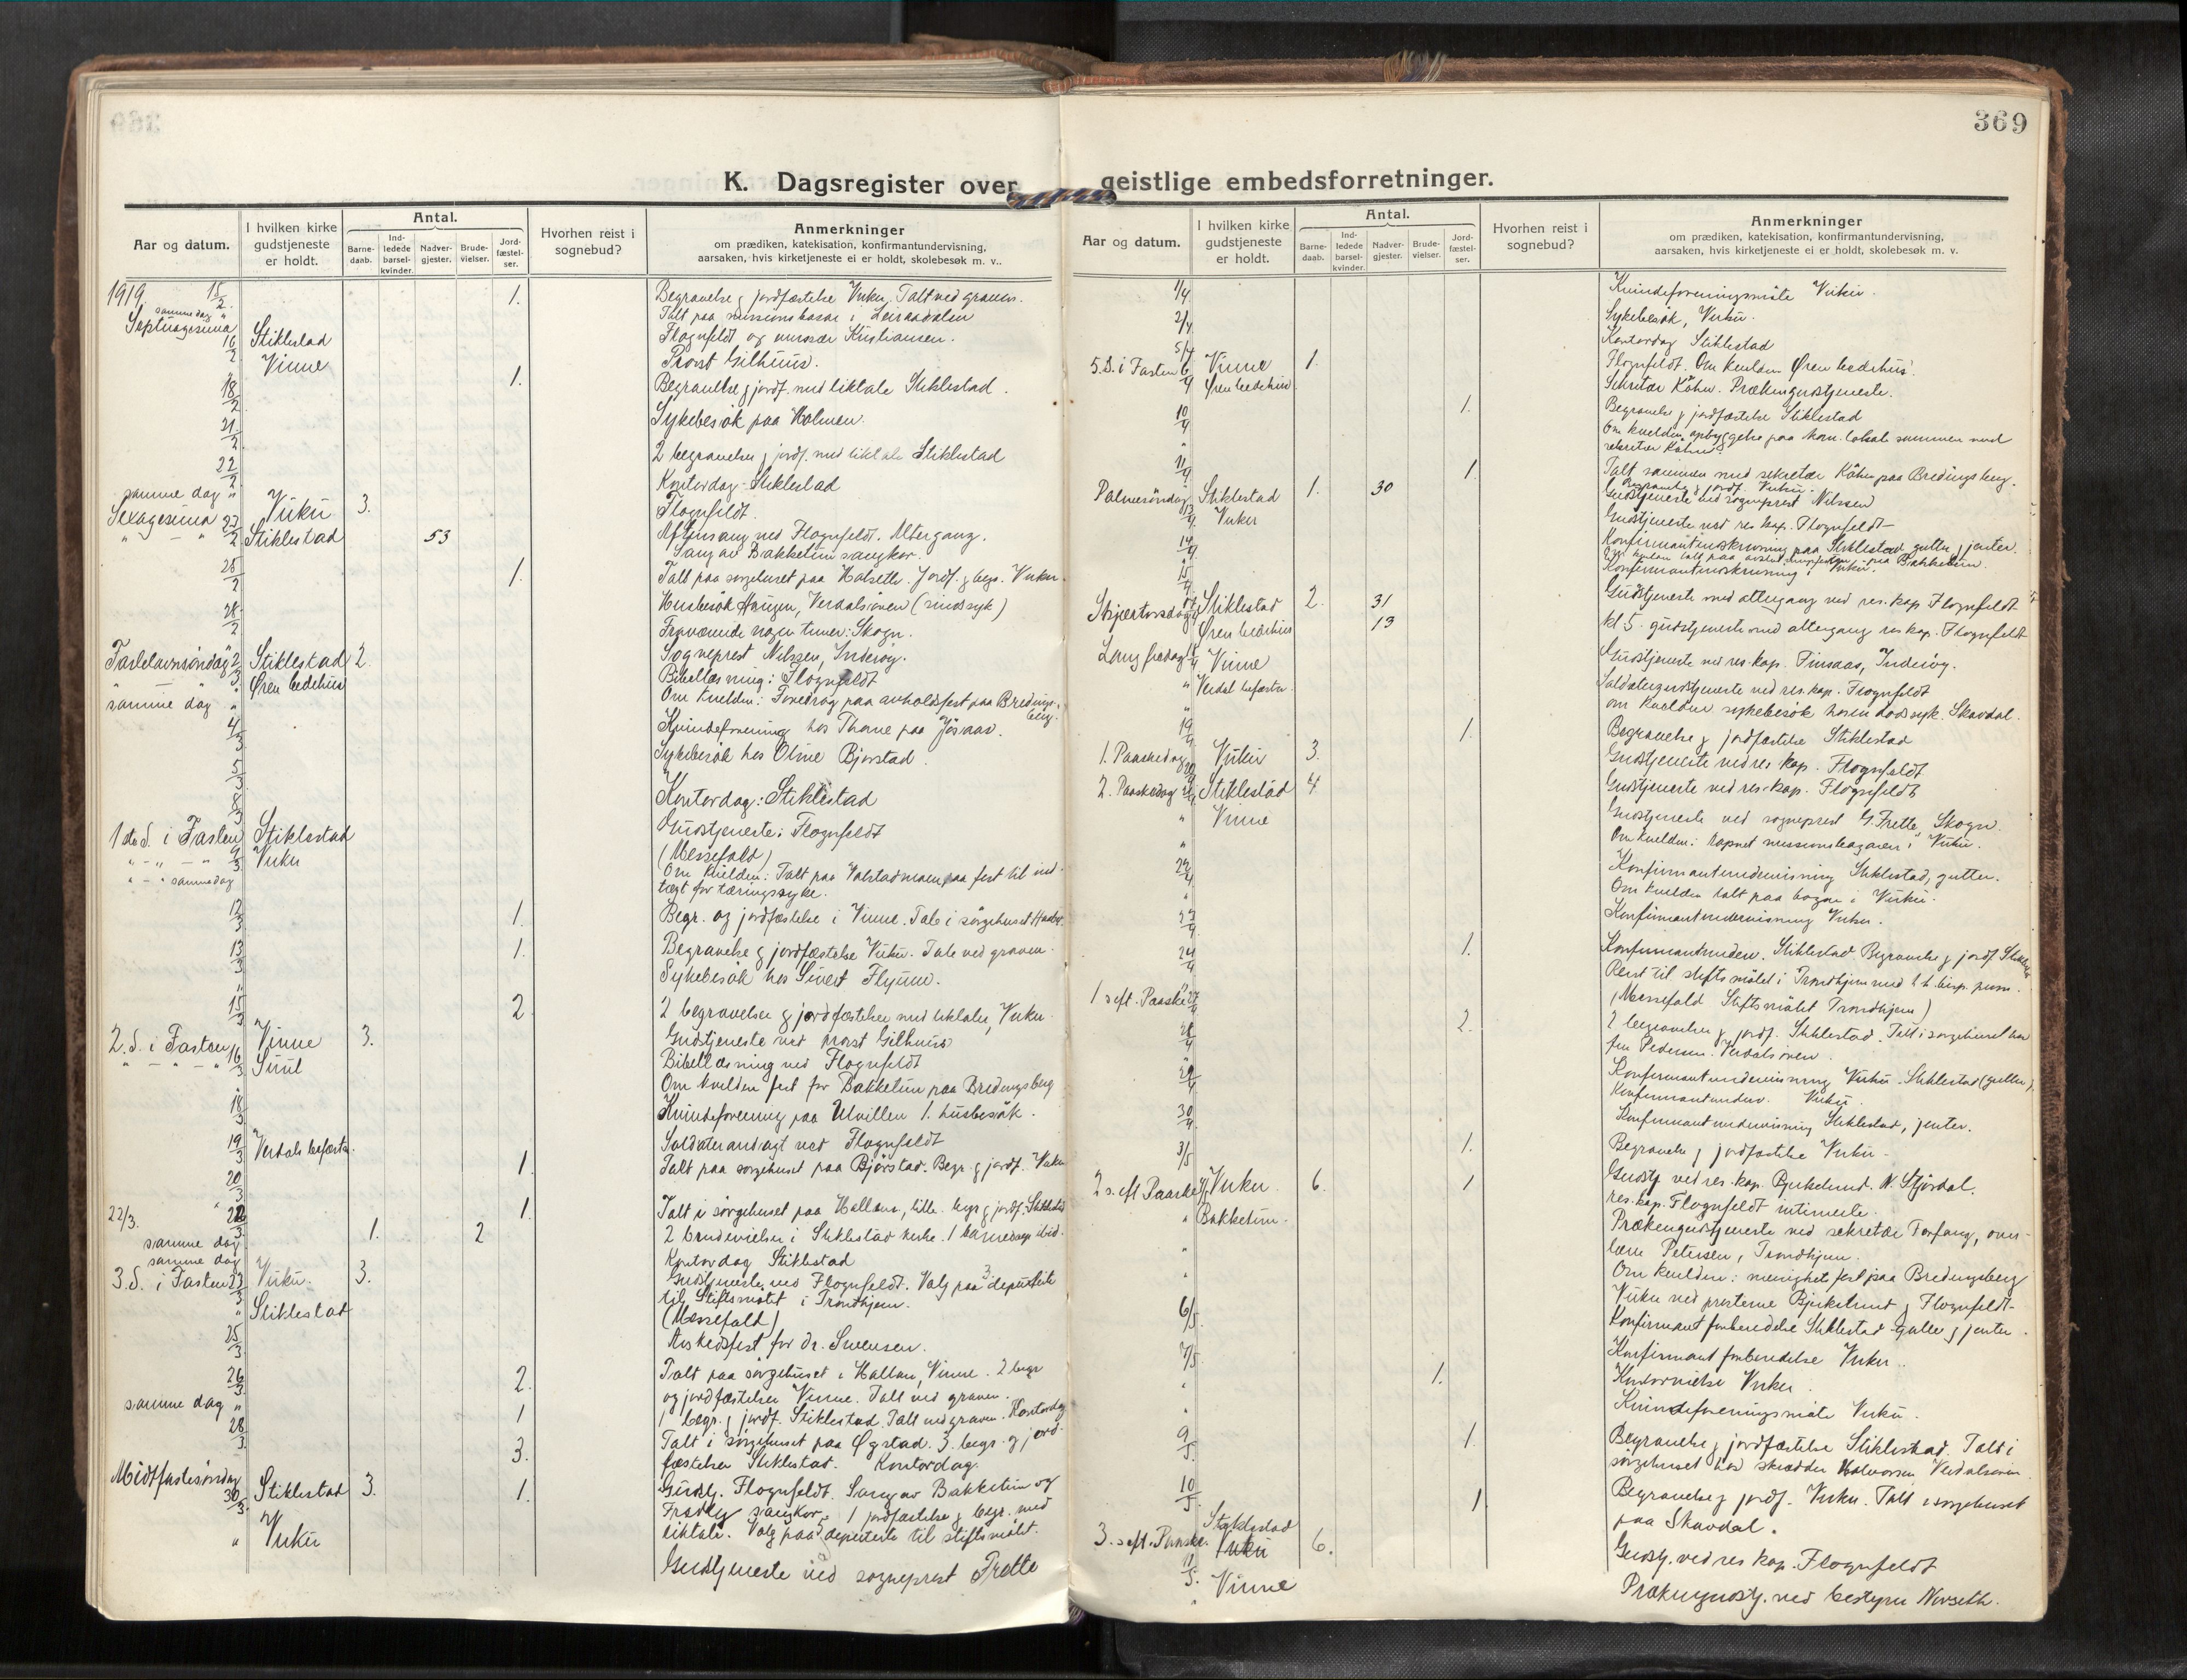 369
K. Dagsregister over geistlige embedsforretninger.
Aar og datum.
I hvilken kirke gudstjeneste er holdt.
Antal.
Barne-daab.
Ind-ledede barsel-kvinder.
Nadver-gjester.
Brude-vielser.
Jord-fæstel-ser.
Hvorhen reist i sognebud?
Anmerkninger
om prædiken, katekisation, konfirmantundervisning,
aarsaken, hvis kirketjeneste ei er holdt, skolebesøk m. v..
1919. 15/2 1. Begravelse & jordfæstelse Vuku. Talt ved graven.
samme dag " Talt paa missionsbasar i Leiraadalen
Septuagesima 16/2 Stiklestad Flognfeldt og emissær Kristiansen.
" Vinne Provst Gilhuus.
18/2 1. Begravelse & jordf. med liktale Stiklestad.
21/2 Sykebesøk paa Holmen.
22/2 2 begravelser & jordf. med liktale Stiklestad
samme dag " Kontordag Stiklestad
Sexagesima 23/2 Vuku 3. Flognfeldt.
" - " Stiklestad 53 Aftensang ved Flognfeldt. Altergang.
Sang av Bakketun sangkor.
25/2 1. Talt paa sørgehuset paa Halseth. Jordf. & begr. Vuku.
Husbesøk Haugen, Verdalsøren (sindssyk)
28/2 Fraværende nogen timer: Skogn.
Fastelavnsøndag 2/3 Stiklestad 2. Sogneprest Nilssen, Inderøy.
" Øren bedehus Bibellæsning: Flognfeldt
samme dag " Om kvelden: Foredrag paa avholdsfest paa Bredings-
berg.
4/3 Kvindeforening hos Thorne paa Jøsaas.
5/3 Sykebesøk hos Oline Bjørstad.
8/3 Kontordag: Stiklestad
1ste S. i Fasten 9/3 Stiklestad Gudstjeneste: Flognfeldt
" - " - " Vuku (Messefald)
" - " samme dag Om kvelden: Talt paa Volstadmoen paa fest til ind-
tægt for tæringssyke.
12/3 1. Begr. og jordfæstelse i Vinne. Tale i sørgehuset
13/3 1. Begravelse & jordfæstelse Vuku. Tale ved graven.
" Sykebesøk hos Sivert Flyum.
15/3 2 2 begravelser & jordfæstelser med liktaler, Vuku.
2. S. i Fasten 16/3 Vinne 3. Gudstjeneste ved provst Gilhuus
" - " - " Suul Bibellæsning ved Flognfeldt
" Om kvelden fest for Bakketun paa Bredingsberg
18/3 Kvindeforening paa Ulvillen 1. husbesøk.
19/3 Verdals befæstn. Soldaterandagt ved Flognfeldt
20/3 1 Talt paa sørgehuset paa Bjørstad. Begr. & jordf. Vuku
22/3. 22/3 1. Talt i sørgehuset paa Hallem, lille. begr & jordf. Stiklestad
samme dag 1. 2 2 brudevielser i Stiklestad kirke. 1 barnedaap ibid.
samme dag Kontordag Stiklestad
3. S. i Fasten 23/3 Vuku. 3. Gudstjeneste ved Flognfeldt. Valg paa 3 deputerte
til Stiftsmøtet i Trondhjem.
" Stiklestad (Messefald)
25/3 Avskedsfest for dr. Svensen.
26/3 2. Talt paa sørgehuset i Hallan, Vinne. 2 begr
og jordfæstelser Vinne. Talt ved graven.
samme dag " 1 1 begr. & jordf. Stiklestad. Talt ved graven. Kontordag
28/3 3. Talt i sørgehuset paa Øgstad. 3. begr. & jord-
fæstelser Stiklestad. Kontordag.
Midtfastesøndag 30/3 Stiklestad 3. 1. Gudstj. Flognfeldt. Sang av Bakketun og
sangkor. 1 jordfæstelse & begr. med
liktale. Valg paa 5 deputerte til stiftsmøtet.
" Vuku Gudstjeneste ved sogneprest Frette
Aar og datum.
I hvilken kirke gudstjeneste er holdt.
Antal.
Barne-daab.
Ind-ledede barsel-kvinder.
Nadver-gjester.
Brude-vielser.
Jord-fæstel-ser.
Hvorhen reist i sognebud?
Anmerkninger
om prædiken, katekisation, konfirmantundervisning,
aarsaken, hvis kirketjeneste ei er holdt, skolebesøk m. v.
1/4 Kvindeforeningsmøte Vuku.
2/4 Sykebesøk, Vuku.
5/4 Kontordag Stiklestad
5. S. i Fasten 6/4 Vinne 1. Flognfeldt. Om kvelden Øren bedehus.
Øren bedehus Sekretær Køhn. Prækengudstjeneste.
10/4 1. Begravelse & jordfæstelse Stiklestad
" Om kvelden opbyggelse paa kom. lokale sammen med
sekretær Køhn.
11/4 1. Talt sammen med sekretær Køhn paa Bredingsberg.
Begravelse & jordf. Vuku.
Palmesøndag 13/4 Stiklestad 1. 30 Gudstjeneste ved sogneprest Nilssen
Vuku Gudstjeneste ved res. kap. Flognfeldt
14/4 Konfirmantindskrivning paa Stiklestad gutter & jenter.
Om kvelden talt paa paa Bakketun.
15/4 Konfirmantindskrivning i Vuku.
Skjærtorsdag 17/4 Stiklestad 2. 31 Gudstjeneste med altergang ved res. kap. Flognfeldt
Øren bedehus 13 kl 5. gudstjeneste med altergang res. kap. Flognfeldt
Langfredag 18/4 Vinne Gudstjeneste ved res. kap. Finsaas, Inderøy.
" Verdal befæstn. Soldatergudstjeneste ved res. kap. Flognfeldt
" om kvelden sykebesøk hos en dødssyk. Skavdal.
19/4 1. Begravelse & jordfæstelse Stiklestad
1. Paaskedag 20/4 Vuku 3. Gudstjeneste ved res. kap. Flognfeldt
2. Paaskedag 21/4 Stiklestad 4 Gudstjeneste ved res. kap. Flognfeldt
" Vinne Gudstjeneste ved sogneprest G. Frette, Skogn.
" Om kvelden: aapnet missionsbazaren i Vuku.
22/4 Konfirmantundervisning Stiklestad, gutter.
" Om kvelden talt paa bazar i Vuku.
23/4 Konfirmantundervisning Vuku.
24/4 1. Konfirmantunderv. Stiklestad. Begravelse & jordf Stiklestad
" Reist til stiftsmøtet i Trondhjem med t. t. bisp. perm.
1 s. eft. Paaske 27/4 (Messefald Stiftsmøtet Trondhjem)
28/4 2. 2 begravelser & jordf. Stiklestad. Talt i sørgehuset hos
fru Pedersen. Verdalsøren.
29/4 Konfirmantundervisning Vuku. Stiklestad (gutter).
" Konfirmantunderv. Vuku.
30/4 Konfirmantundervisning Stiklestad, jenter.
3/5 1. Begravelse & jordfæstelse Vuku.
2 s. eft Paaske 4/5 Vuku 6. 1 Gudstj ved res. kap. Bjerkelund. N. Stjørdal.
res. kap. Flognfeldt intimerte.
" Bakketun. Prækengudstjeneste ved sekretær Torfang, over-
lærer Petersen, Trondhjem.
" Om kvelden: menighetsfest paa Bredingsberg
Vuku ved presterne Bjerkelund & Flognfeldt.
6/5 Konfirmantforberedelse Stiklestad gutter & jenter.
7/5 Konfirmantforberedelse Vuku.
" 1. Kontorvielse Vuku.
" Kvindeforeningsmøte Vuku.
9/5 1. Begravelse & jordfæstelse Stiklestad. Talt i
sørgehuset hos skrædder Halvorsen Verdalsøren.
10/5 1 Begravelse & jordf. Vuku. Talt i sørgehuset
paa Skavdal.
3. s. eft. Paaske 11/5 Stiklestad 6. Gudstj. ved res kap. Flognfeldt
Vuku
" Vinne Prækengudstj. ved bestyrer Norseth.